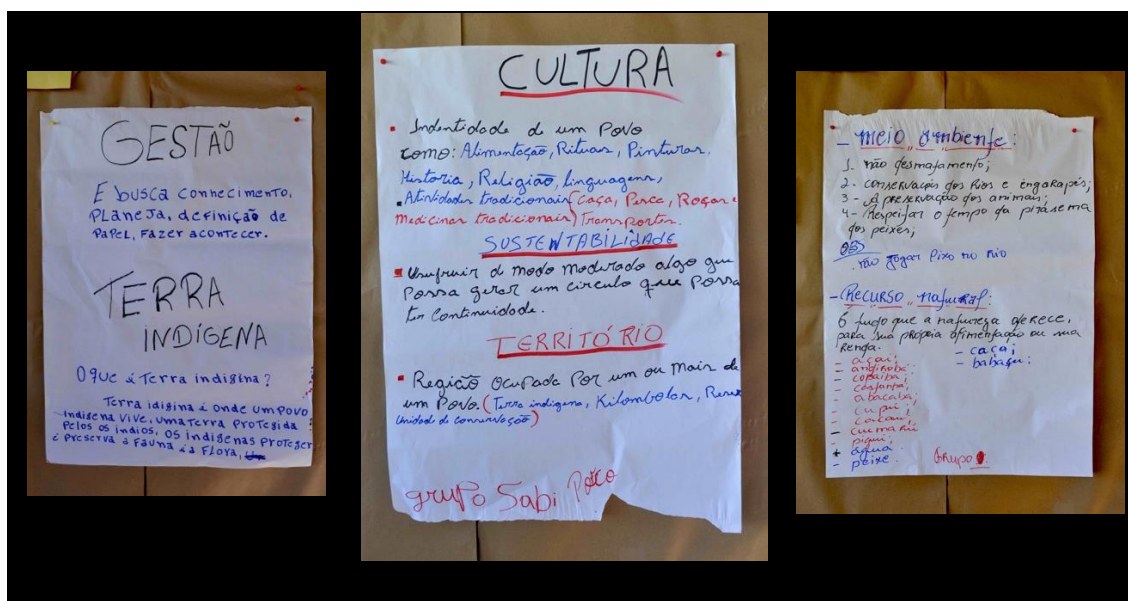 GESTÃO
E busca conhecimento,
planeja, definição de
papel, fazer acontecer.
TERRA
INDÍGENA
O que é Terra indigina?
Terra idigina é onde um povo
indigena vive, uma terra protegida
pelos os indios, os indígenas proteger
é preserva a fauna é a flora,
CULTURA
Indentidade de um Povo
como: Alimentação, Rituas, Pinturas,
Historia, Religião, linguagens,
Atividades tradicionais (caça, Pesca, Roças e
medicinas tradicionais) Transportes.
SUSTENTABILIDADE
Usufruir d modo moderado algo que
Possa gerar um circulo que Possa
ter Continuidade.
TERRITÓRIO
Região ocupada Por um ou mais de
um Povo. (Terra indigena, Kilombolas,
Unidade d conservação)
grupo Sabi
- meio ambiente:
1. não desmatamento;
2. conservação dos Rios e engarapés;
3 - A preservação dos animais;
4- Respeitar o tempo da pirasema
dos peixes;
OBS
. não jogar Lixo no rio
- Recurso natural:
é tudo que a natureza oferece,
para sua própria alimentação ou sua
Renda.
- açai;
- andiroba;
- copaiba;
- castanha;
- abacaba;
- cupu;
- cacau;
- cumaru
- piqui;
+ água.
- peixe.
- caça;
- babaçu.
Grupo